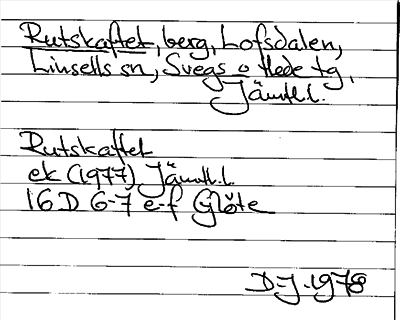 Rutskaftet, berg, Lofsdalen,
Linsells sn, Svegs o Hede tg,
Jämtl.l.
Rutskaftet
ek (1977) Jämtl.l.
16D 6-7 e-f Glöte
D-J. 1978